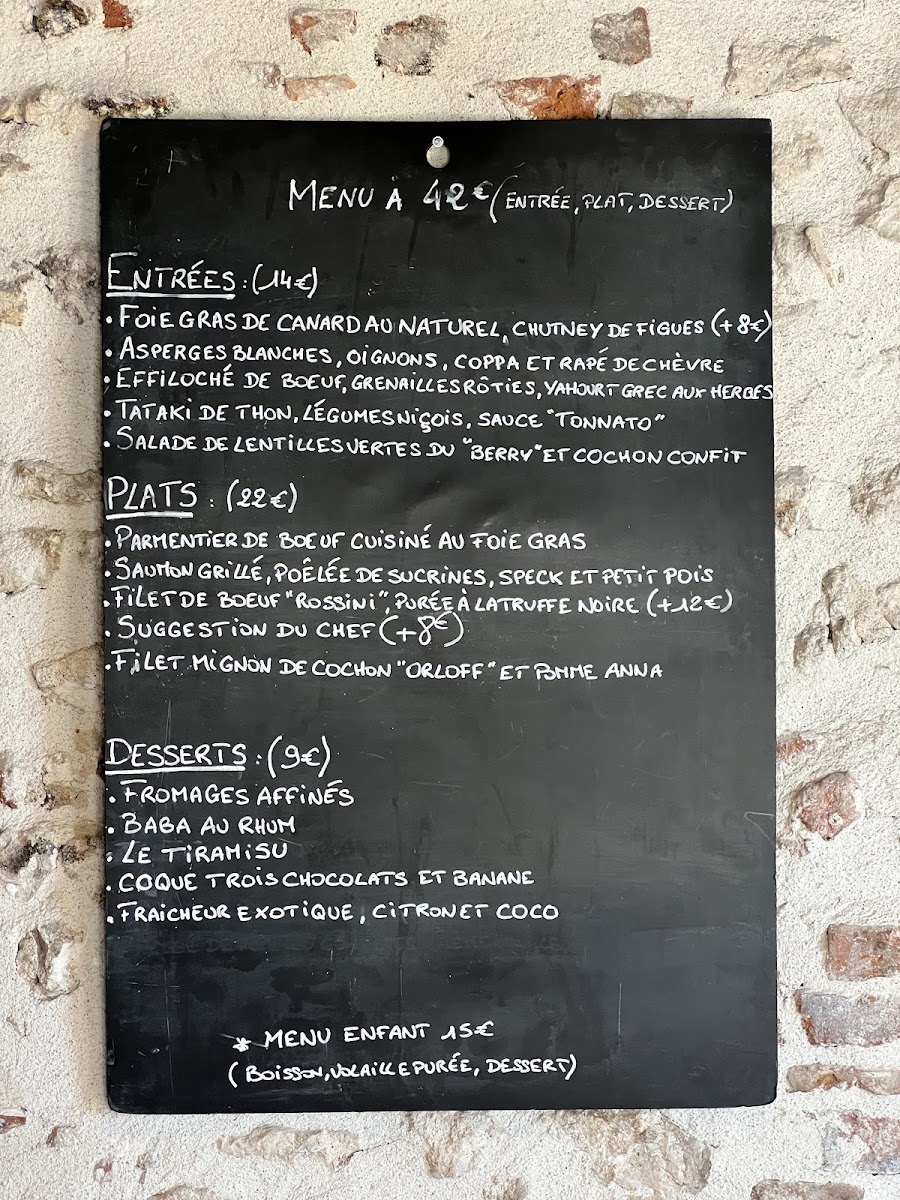 MENU À 42€ (ENTRÉE, PLAT, DESSERT)
ENTRÉES : (14€)
• FOIE GRAS DE CANARD AU NATUREL, CHUTNEY DE FIGUES (+8€)
• ASPERGES BLANCHES, OIGNONS, COPPA ET RAPÉ DE CHÈVRE
• EFFILOCHÉ DE BOEUF, GRENAILLES RÔTIES, YAHOURT GREC AUX HERBES
• TATAKI DE THON, LÉGUMES NIÇOIS, SAUCE "TONNATO"
• SALADE DE LENTILLES VERTES DU "BERRY" ET COCHON CONFIT
PLATS : (22€)
• PARMENTIER DE BOEUF CUISINÉ AU FOIE GRAS
• SAUMON GRILLÉ, POÊLÉE DE SUCRINES, SPECK ET PETIT POIS
• FILET DE BOEUF "ROSSINI", PURÉE À LA TRUFFE NOIRE (+12€)
• SUGGESTION DU CHEF (+8€)
• FILET MIGNON DE COCHON "ORLOFF" ET POMME ANNA
DESSERTS : (9€)
• FROMAGES AFFINÉS
• BABA AU RHUM
• LE TIRAMISU
• COQUE TROIS CHOCOLATS ET BANANE
• FRAICHEUR EXOTIQUE, CITRON ET COCO
* MENU ENFANT 15€
(BOISSON, VOLAILLE PURÉE, DESSERT)